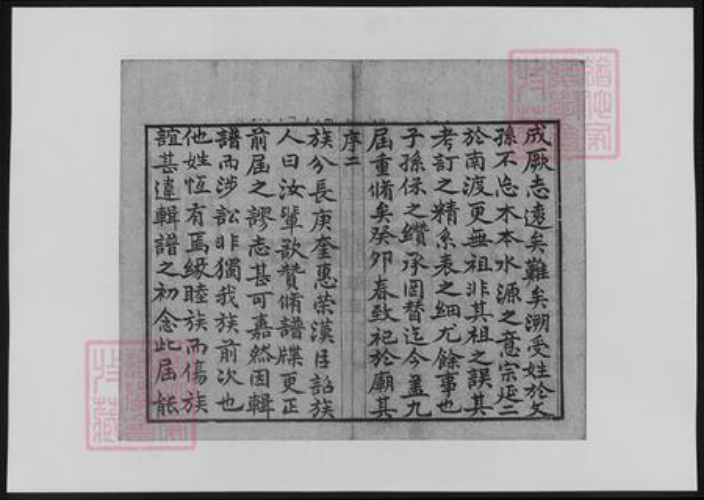 成厥志遠矣難矣溯受姓於文
孫不忘木本水源之意宗延二
於南渡更無祖非其祖之誤其
考訂之精系表之細尤餘事也
子孫保之纘承罔替迄今蓋九
屆重脩矣癸卯春致祀於廟其
序二
族分長庚奎惠榮漢臣詔族
人曰汝輩歆贊脩譜牒更正
前屆之謬志甚可嘉然因輯
譜而涉訟非獨我族前次也
他姓恆有焉緣睦族而傷族
誼甚違輯譜之初念此屆能